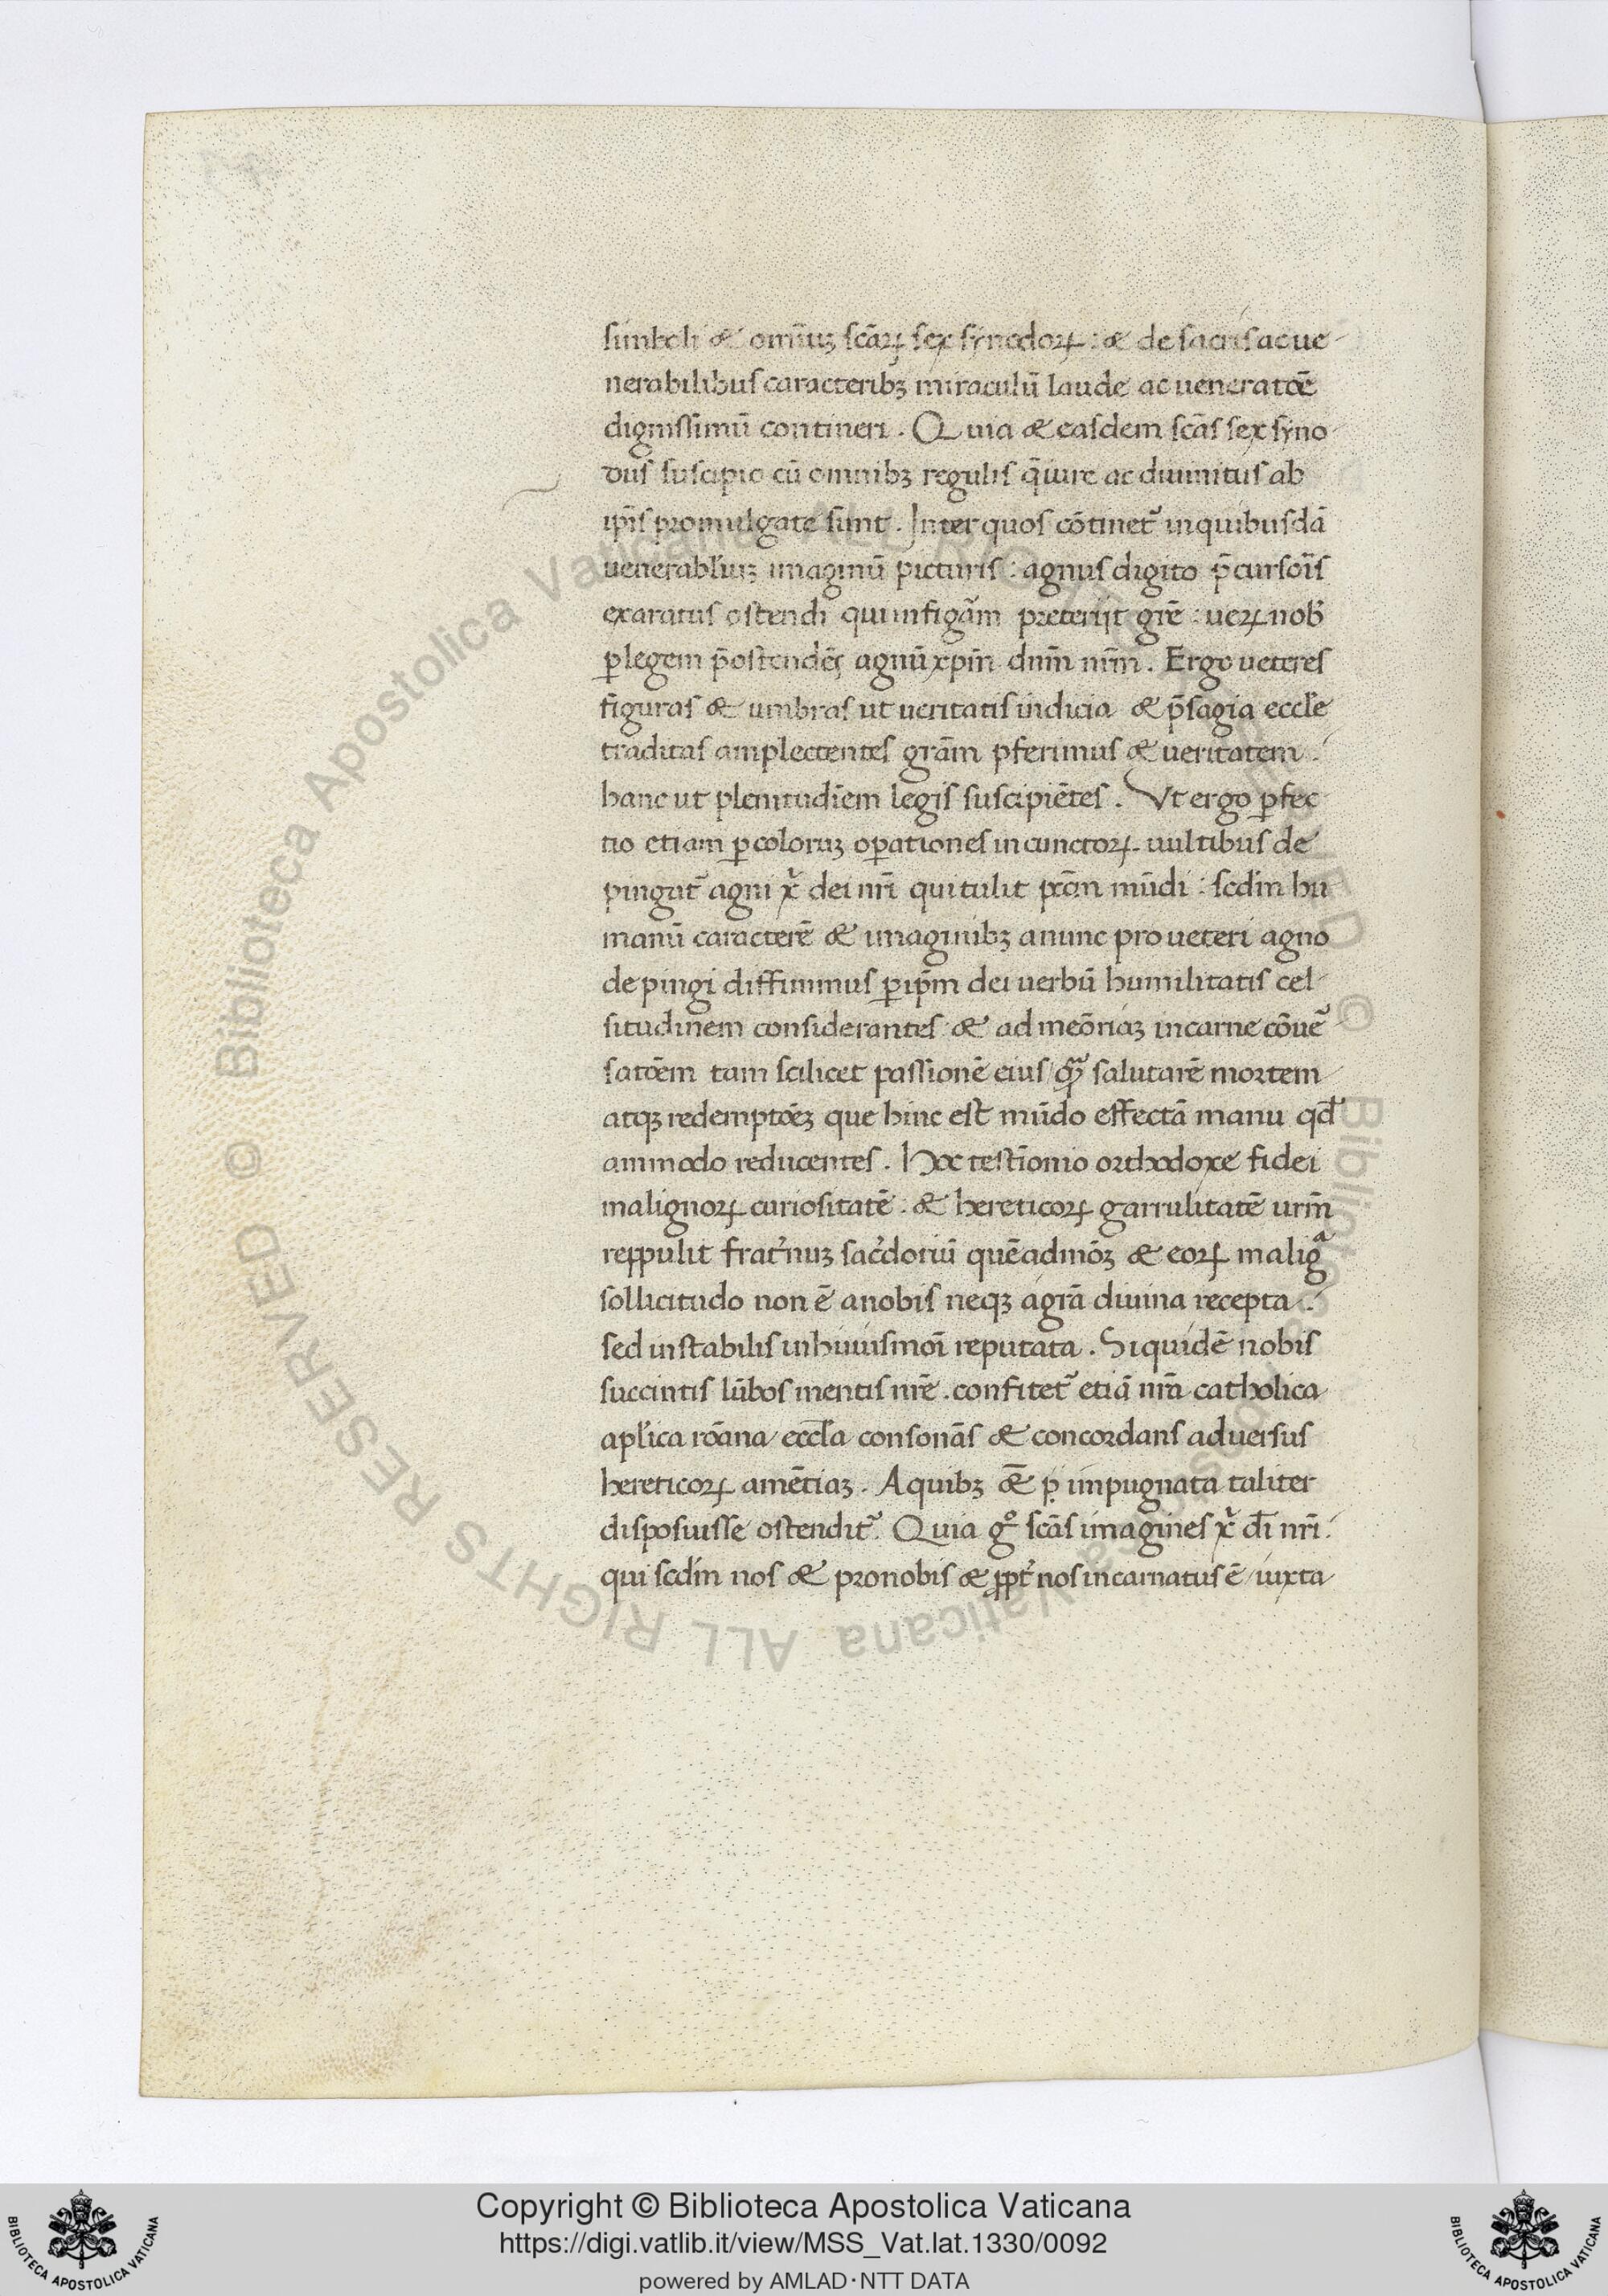 simboli & omĩuȝ scãꝝ sex synodoꝝ : & de sacris ac ue
nerabilibus caracteribȝ miraculũ laude ac ueneratõe
dignissimũ contineri . Quia & easdem scãs sex syno
dus suscipio cũ omnibȝ regulis q̃ iure ac diuinitus ab
ip̃is promulgate sunt . Inter quos cõtinet᷑ in quibusdã
uenerabl̓iuȝ imaginũ picturis : agnus digito p̃cursoĩs
exaratus ostendi qui in figãm preterijt grẽ : ueꝝ nob̓
ꝑ legem p̃ostendẽs agnũ xp̃m dnm̃ nrm̃ . Ergo ueteres
figuras & umbras ut ueritatis indicia & p̃sagia eccl̓e
traditas amplectentes grãm p̃ferimus & ueritatem .
hanc ut plenitudĩem legis suscipiẽtes . Vt ergo ꝑfec
tio etiam ꝑ coloruȝ oꝑationes in cunctoꝝ uultibus de
pingat᷑ agni x᷑ dei nrĩ qui tulit pcc̃m mũdi : scd̓m hu
manũ caracterẽ & imaginibȝ a nunc pro ueteri agno
depingi diffinimus ꝑ ip̃m dei uerbũ humilitatis cel
situdinem considerantes & ad meõriaȝ in carne cõue᷑
satõem tam scilicet passionẽ eius qᷓȝ salutarẽ mortem
atqȝ redemptõeȝ que hinc est mũdo effectã manu qd̃
ammodo reducentes . Hoc testĩonio orthodoxe fidei
malignoꝝ curiositatẽ : & hereticoꝝ garrulitatẽ urm̃
reppulit frat᷑nuȝ sac᷑dotiũ quẽadmõȝ & eoꝝ maligᷓ
sollicitudo non ẽ a nobis neqȝ a grã diuina recepta .
sed instabilis in huiusmoĩ reputata . Siquidẽ nobis
succintis lũbos mentis nrẽ . confitet᷑ etiã nrã catholica
apl̓ica rõana eccl̃a consonãs & concordans aduersus
hereticoꝝ amẽtiaȝ . A quibȝ &̃ p̱ impugnata taliter
disposuisse ostendit᷑ . Quia gͦ scãs imagines x᷑ dĩ nrĩ .
qui scd̓m nos & pro nobis & ꝓpt᷑ nos incarnatus ẽ iuxta
© Biblioteca Apostolica Vaticana ALL RIGHTS RESERVED © Biblioteca Apostolica Vaticana ALL RIGHTS RESERVED
Copyright © Biblioteca Apostolica Vaticana
https://digi.vatlib.it/view/MSS_Vat.lat.1330/0092
powered by AMLAD·NTT DATA
BIBLIOTECA APOSTOLICA VATICANA
BIBLIOTECA APOSTOLICA VATICANA